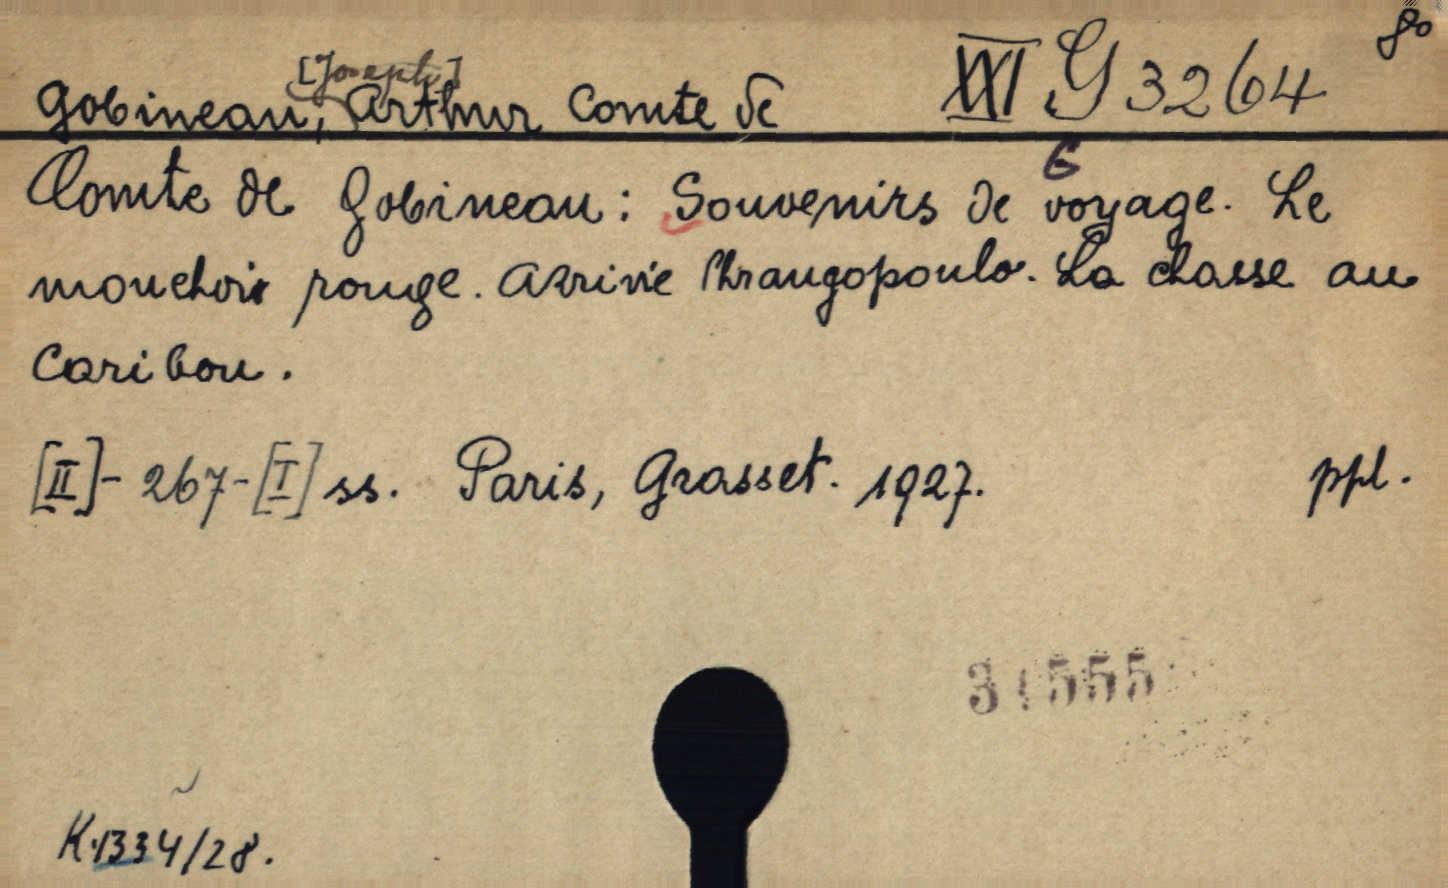 8°
[Joseph]
Gobineau, Arthur Comte de XXI G 3264
G
Comte de Gobineau: Souvenirs de voyage. Le
mouchoir rouge. Akrivie Phrangopoulo. La chasse au
Caribou.
[II]-267-[I] ss. Paris, Grasset. 1927. ppl.
555
K.1334/28.